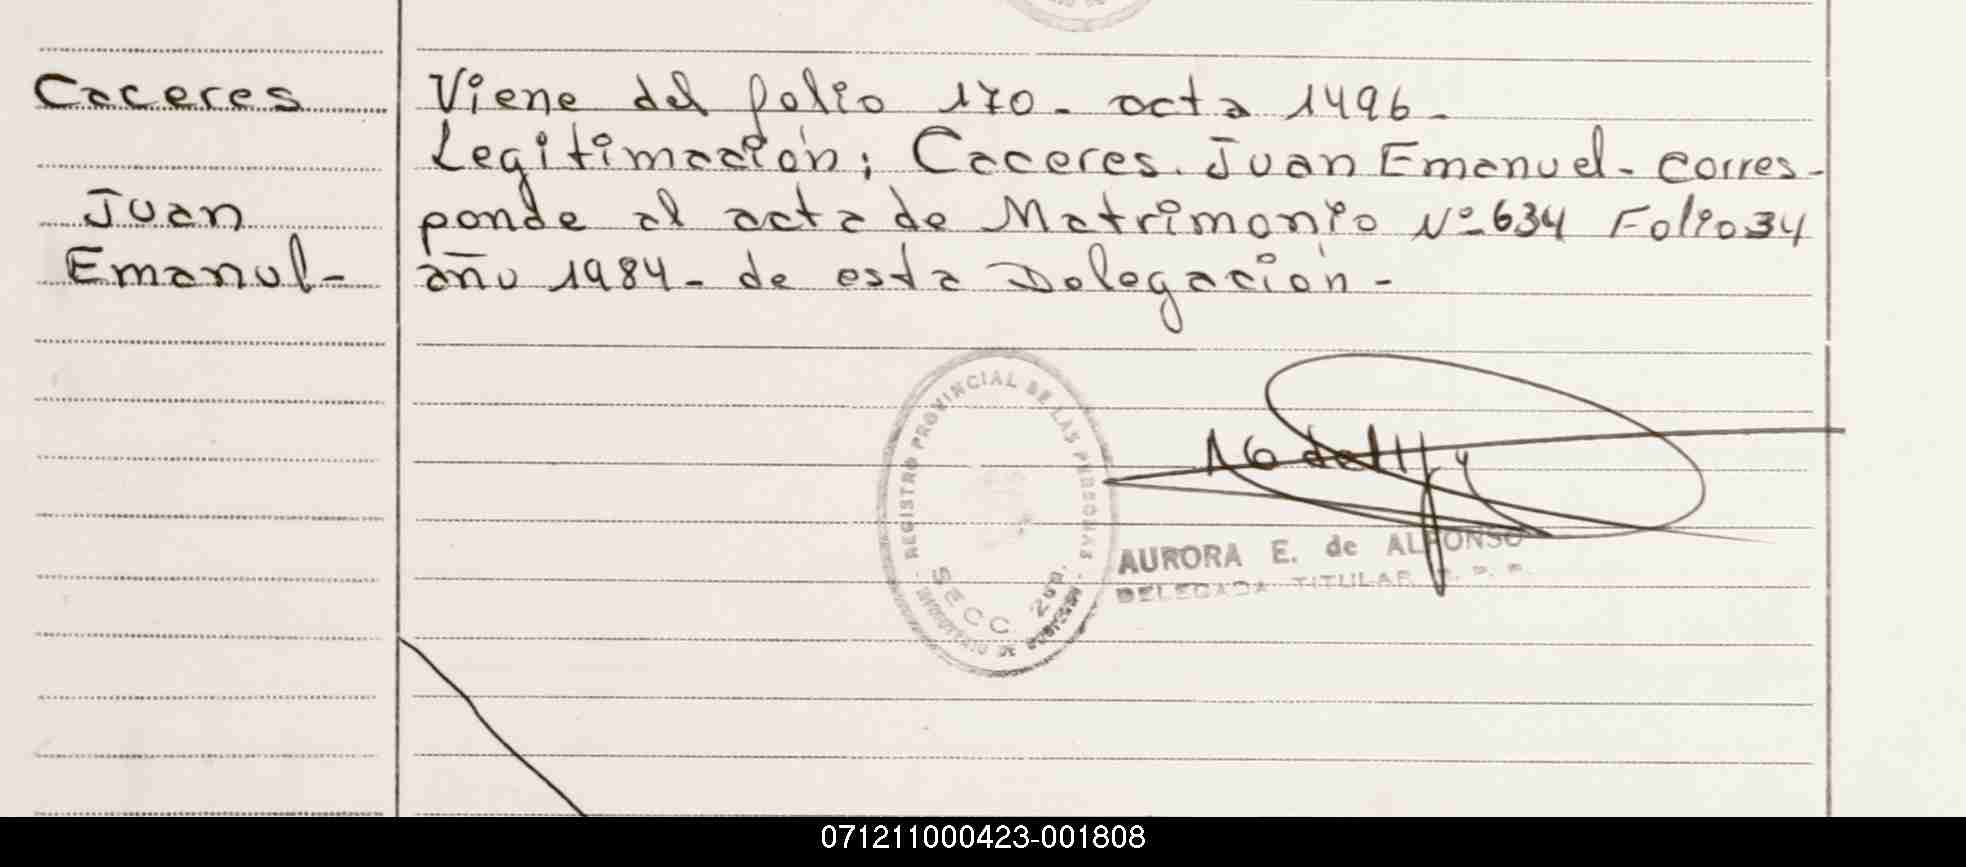 Caceres
Juan
Emanul-
Viene del folio 170- acta 1496-
Legitimación; Caceres. Juan Emanuel- corres-
ponde al acta de Matrimonio Nº 634 Folio 34
año 1984- de esta Delegación-
REGISTRO PROVINCIAL DE LAS PERSONAS
SECC 2da.
AURORA E. de ALFONSO
DELEGADA TITULAR
071211000423-001808